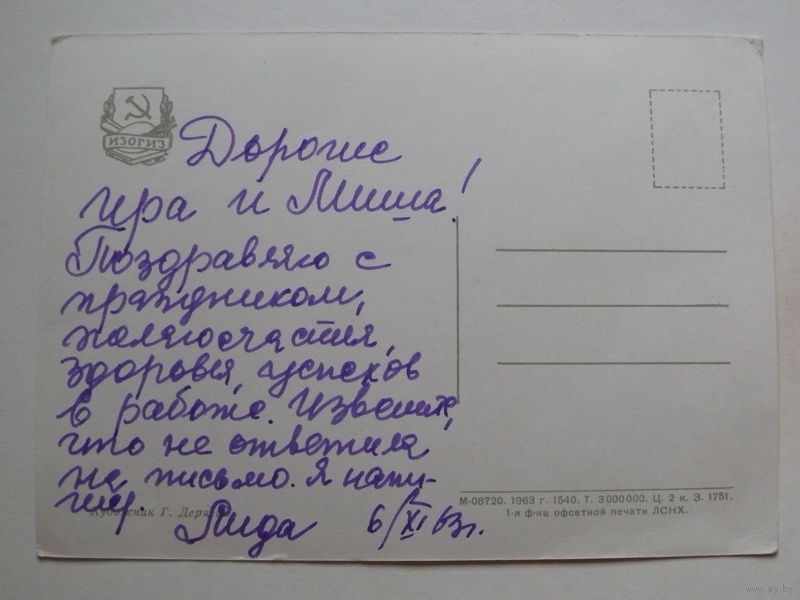 ИЗОГИЗ
Дорогие
Ира и Миша!
Поздравляю с
праздником,
желаю счастия,
здоровья, успехов
в работе. Извените,
что не ответила
на письмо. Я напи-
шу.
Лида 6/XI 63г.
Художник Г. Держ
М-08720. 1963 г. 1540. Т. 3000000. Ц. 2 к. З. 1751.
1-я ф-ка офсетной печати ЛСНХ.
www.ay.by